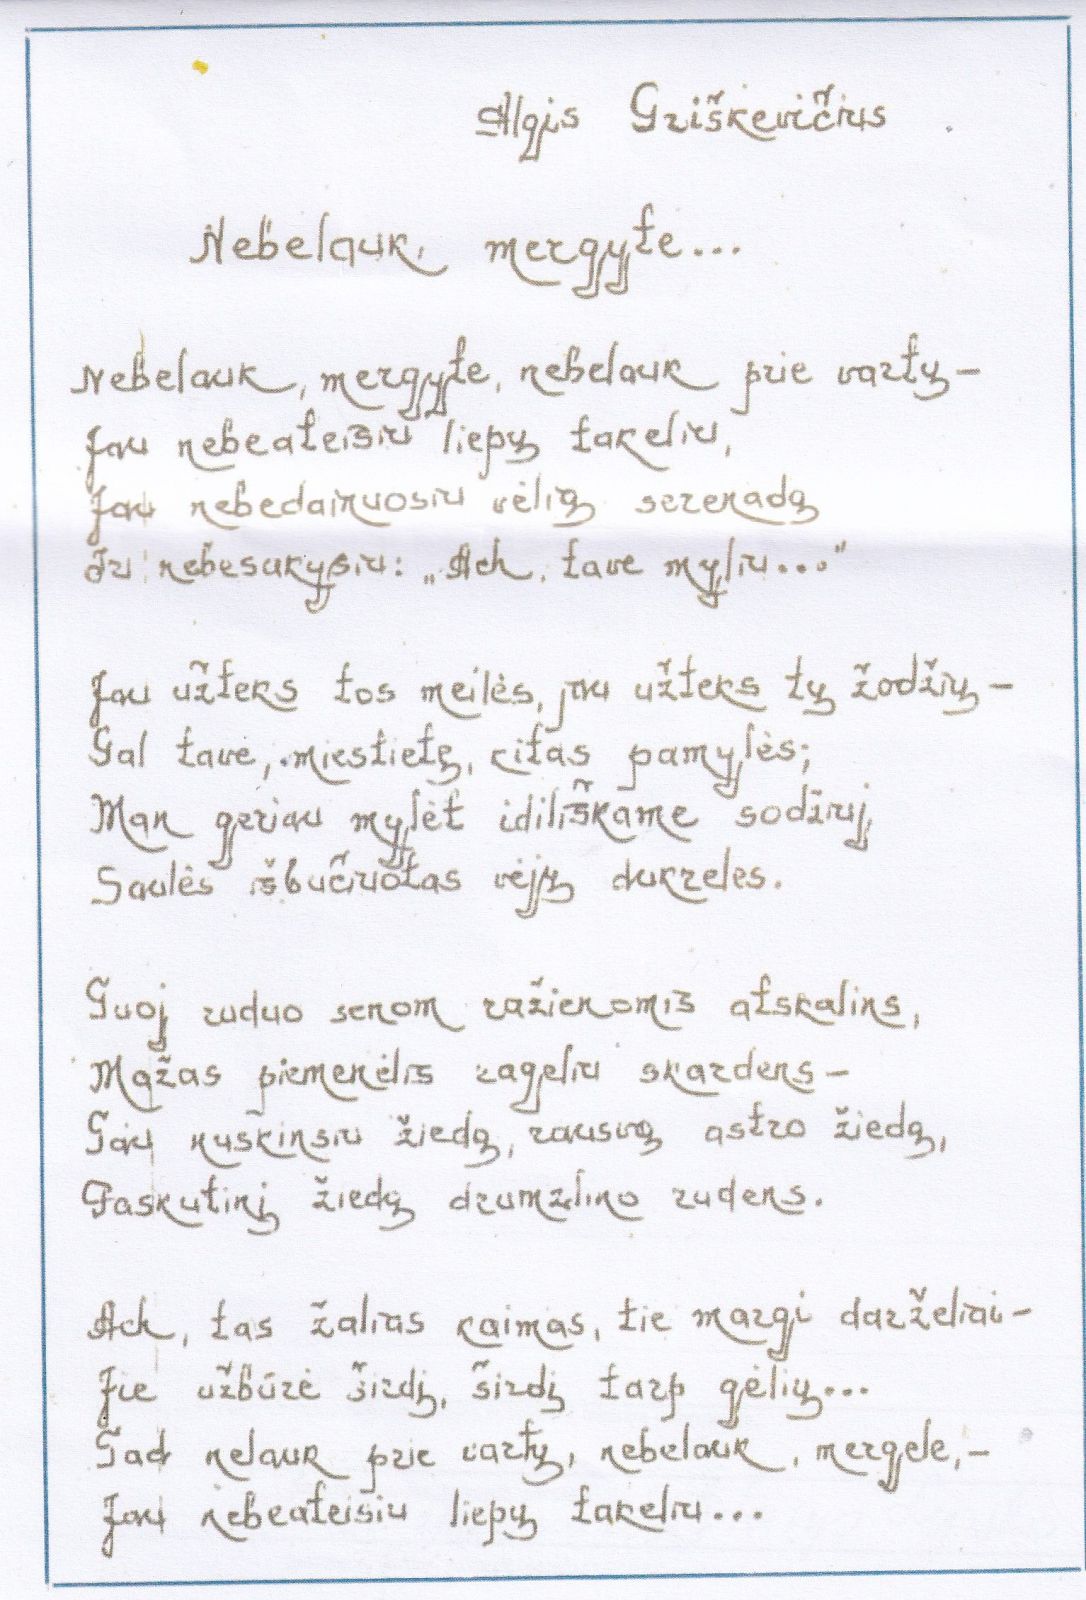 Algis Griškevičius
Nebelauk, mergyte...
Nebelauk, mergyte, nebelauk prie vartų –
Jau nebeateisiu liepų takeliu,
Jau nebedainuosiu vėlią serenadą
Ir nebesakysiu: „Ach, tave myliu..."
Jau užteks tos meilės, jau užteks tų žodžių –
Gal tave, miestietę, kitas pamylės;
Man geriau mylėt idiliškame sodžiuj
Saulės išbučiuotas vėjų dukreles.
Tuoj ruduo senom ražienomis atskalins,
Mažas piemenėlis rageliu skardens –
Tau nuskinsiu žiedą, rausvą astro žiedą,
Paskutinį žiedą drumzlino rudens.
Ach, tas žalias kaimas, tie margi darželiai –
Jie užbūrė širdį, širdį tarp gėlių...
Tad nelauk prie vartų, nebelauk, mergele, –
Jau nebeateisiu liepų takeliu...